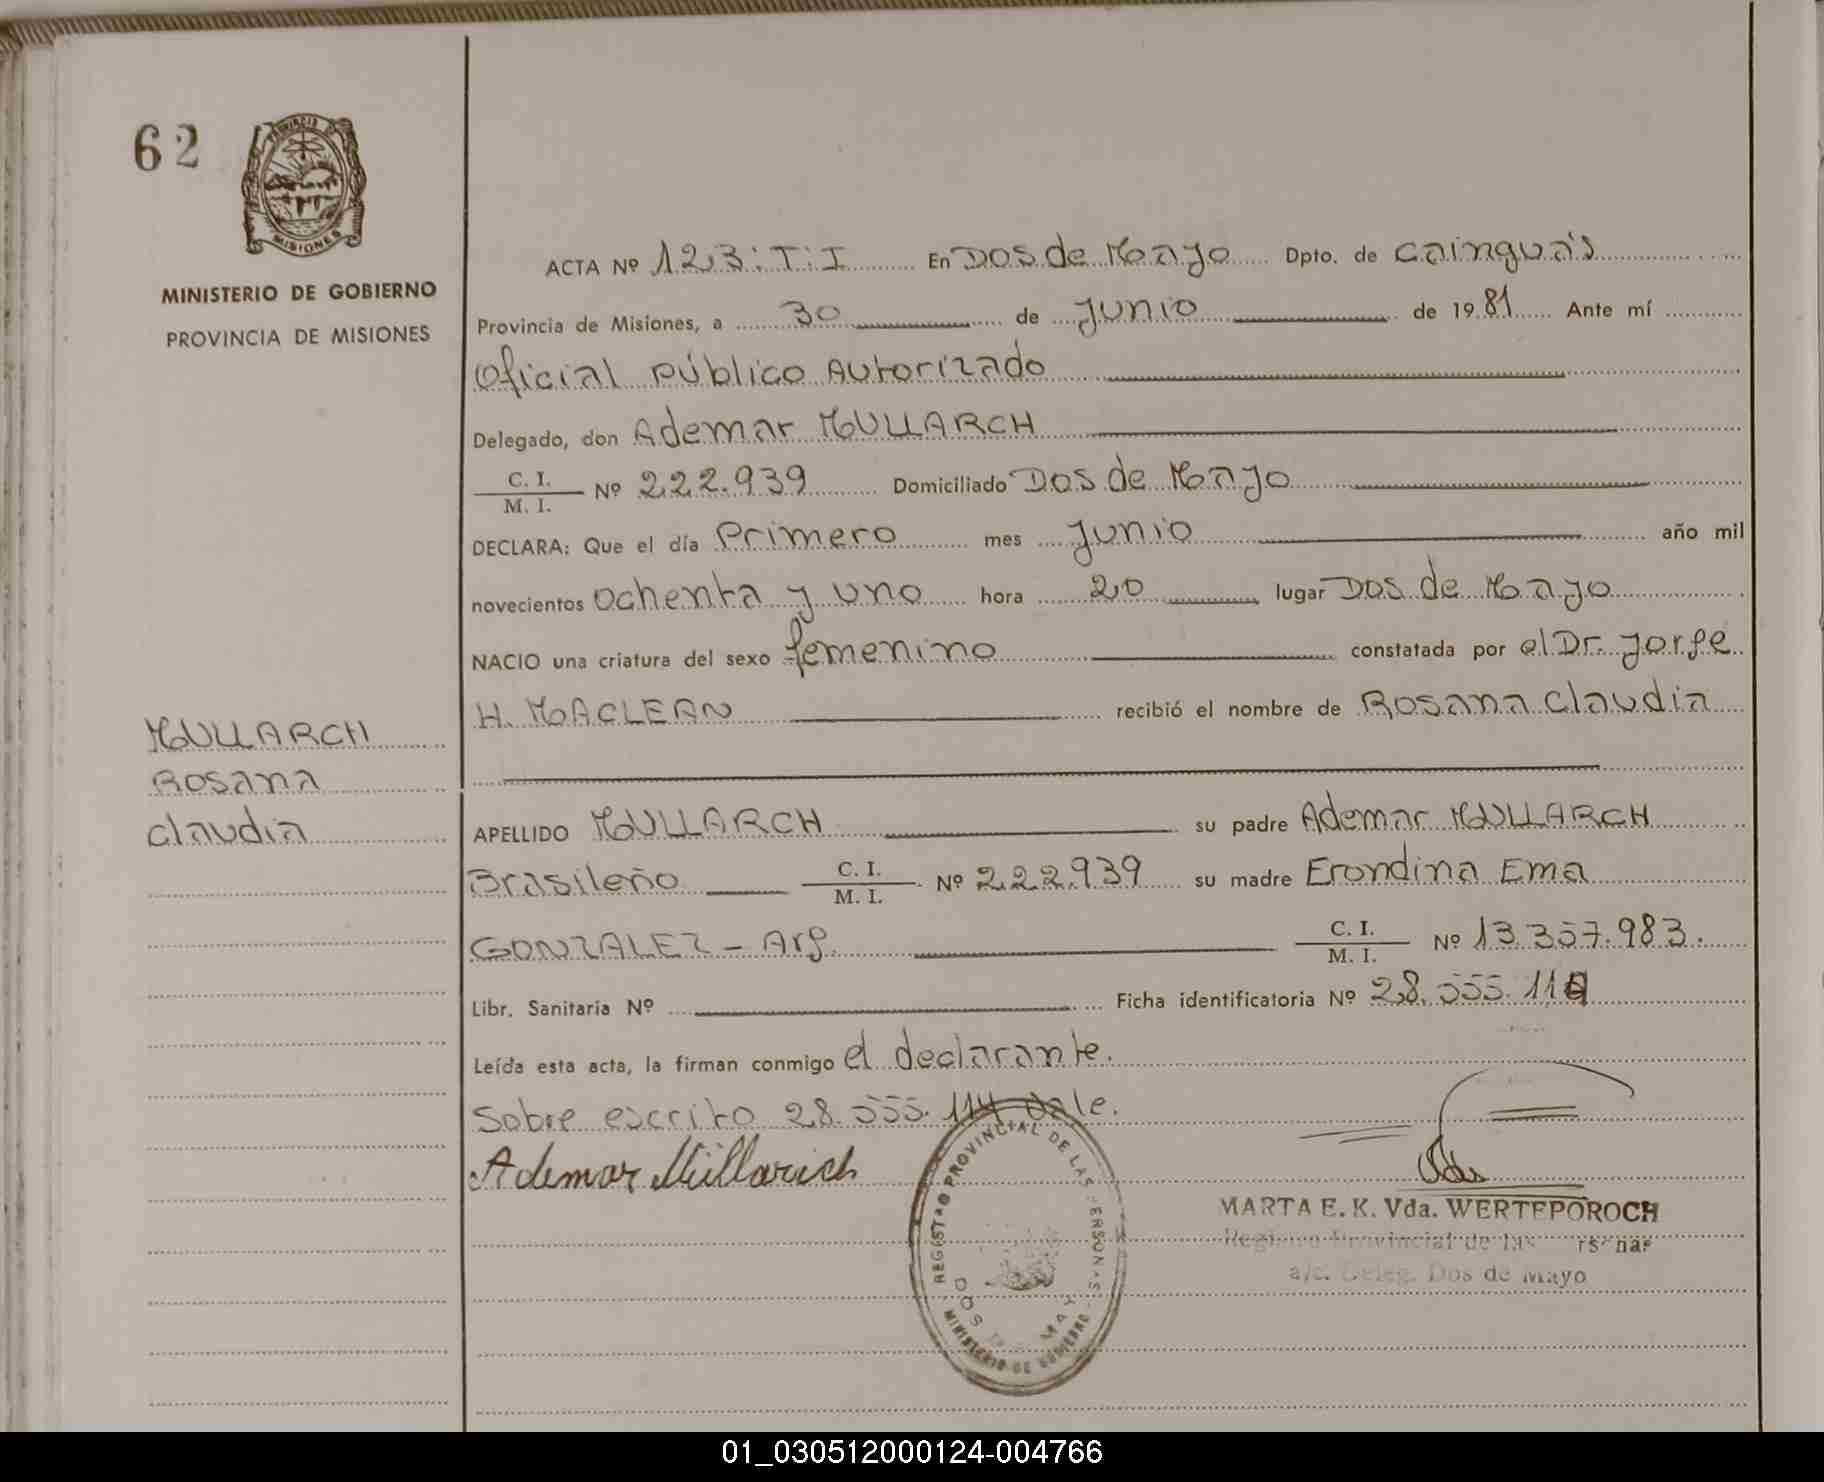 62
PROVINCIA DE
MISIONES
MINISTERIO DE GOBIERNO
PROVINCIA DE MISIONES
ACTA Nº 123: T: I En Dos de Mayo Dpto. de Cainguás
Provincia de Misiones, a 30 de Junio de 1981 Ante mí
Oficial Público Autorizado
Delegado, don Ademar MULLARCH
C. I.
M. I. Nº 222.939 Domiciliado Dos de Mayo
DECLARA: Que el día Primero mes Junio año mil
novecientos Ochenta y uno hora 20 lugar Dos de Mayo
NACIO una criatura del sexo femenino constatada por el Dr. Jorge
H. MACLEAN recibió el nombre de Rosana Claudia
MULLARCH
Rosana
Claudia
APELLIDO MULLARCH su padre Ademar MULLARCH
Brasileño C. I.
M. I. Nº 222.939 su madre Erondina Ema
GONZALEZ - Arg. C. I.
M. I. Nº 13.357.983.
Libr. Sanitaria Nº Ficha identificatoria Nº 28.555.11
Leída esta acta, la firman conmigo el declarante.
Sobre escrito 28.555.114 Vale.
Ademar Müllarich
REGISTRO PROVINCIAL DE LAS PERSONAS
DOS DE MAYO
MINISTERIO DE GOBIERNO
MARTA E. K. Vda. WERTEPOROCH
Registro Provincial de las Personas
a/c. Deleg. Dos de Mayo
01_030512000124-004766